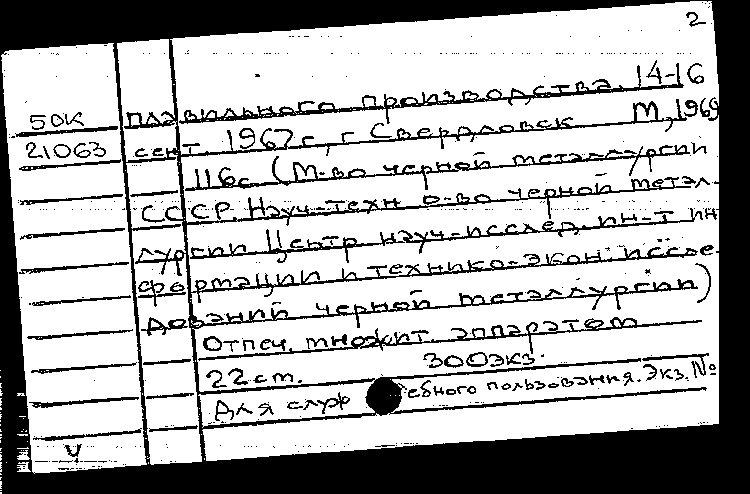 2
50К плавильного производства. 14-16
21063 сент. 1967 г, г Свердловск М, 1969
116с (М-во черной металлургии
СССР. Науч-техн о-во черной метал-
лургии Центр науч-исслед. ин-т ин
формации и технико-экон. иссле
дований черной металлургии)
Отпеч. множит. аппаратом
22 cm. 300экз.
Для служебного пользования. Экз. №